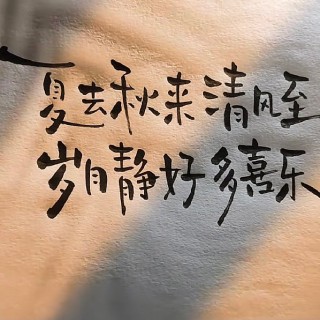 夏去秋来清风至
岁月静好多喜乐